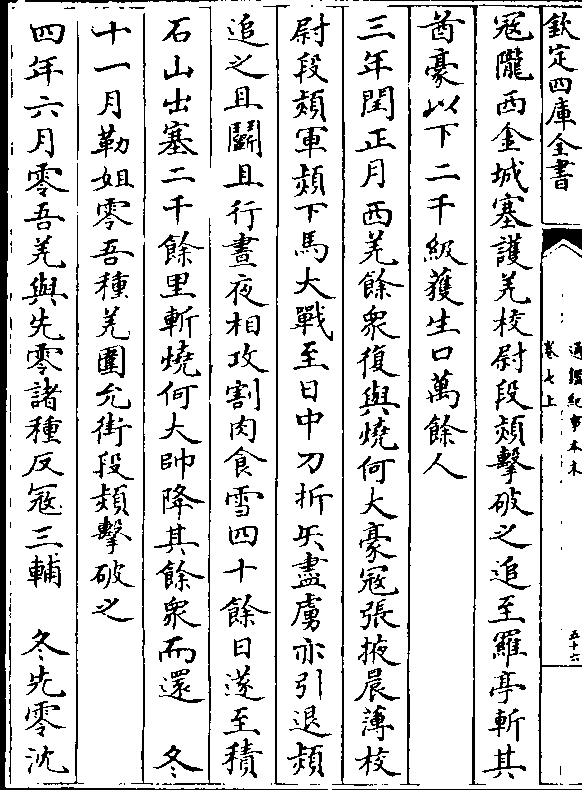 欽定四庫全書
通鑑紀事本末
卷七上
五十六
寇隴西金城塞護羌校尉段熲擊破之追至羅亭斬其
酋豪以下二千級獲生口萬餘人
三年閏正月西羌餘衆復與燒何大豪寇張掖晨薄校
尉段熲軍熲下馬大戰至日中刀折矢盡虜亦引退熲
追之且鬭且行晝夜相攻割肉食雪四十餘日遂至積
石山出塞二千餘里斬燒何大帥降其餘衆而還　冬
十一月勒姐零吾種羌圍允街段熲擊破之
四年六月零吾羌與先零諸種反寇三輔　冬先零沈